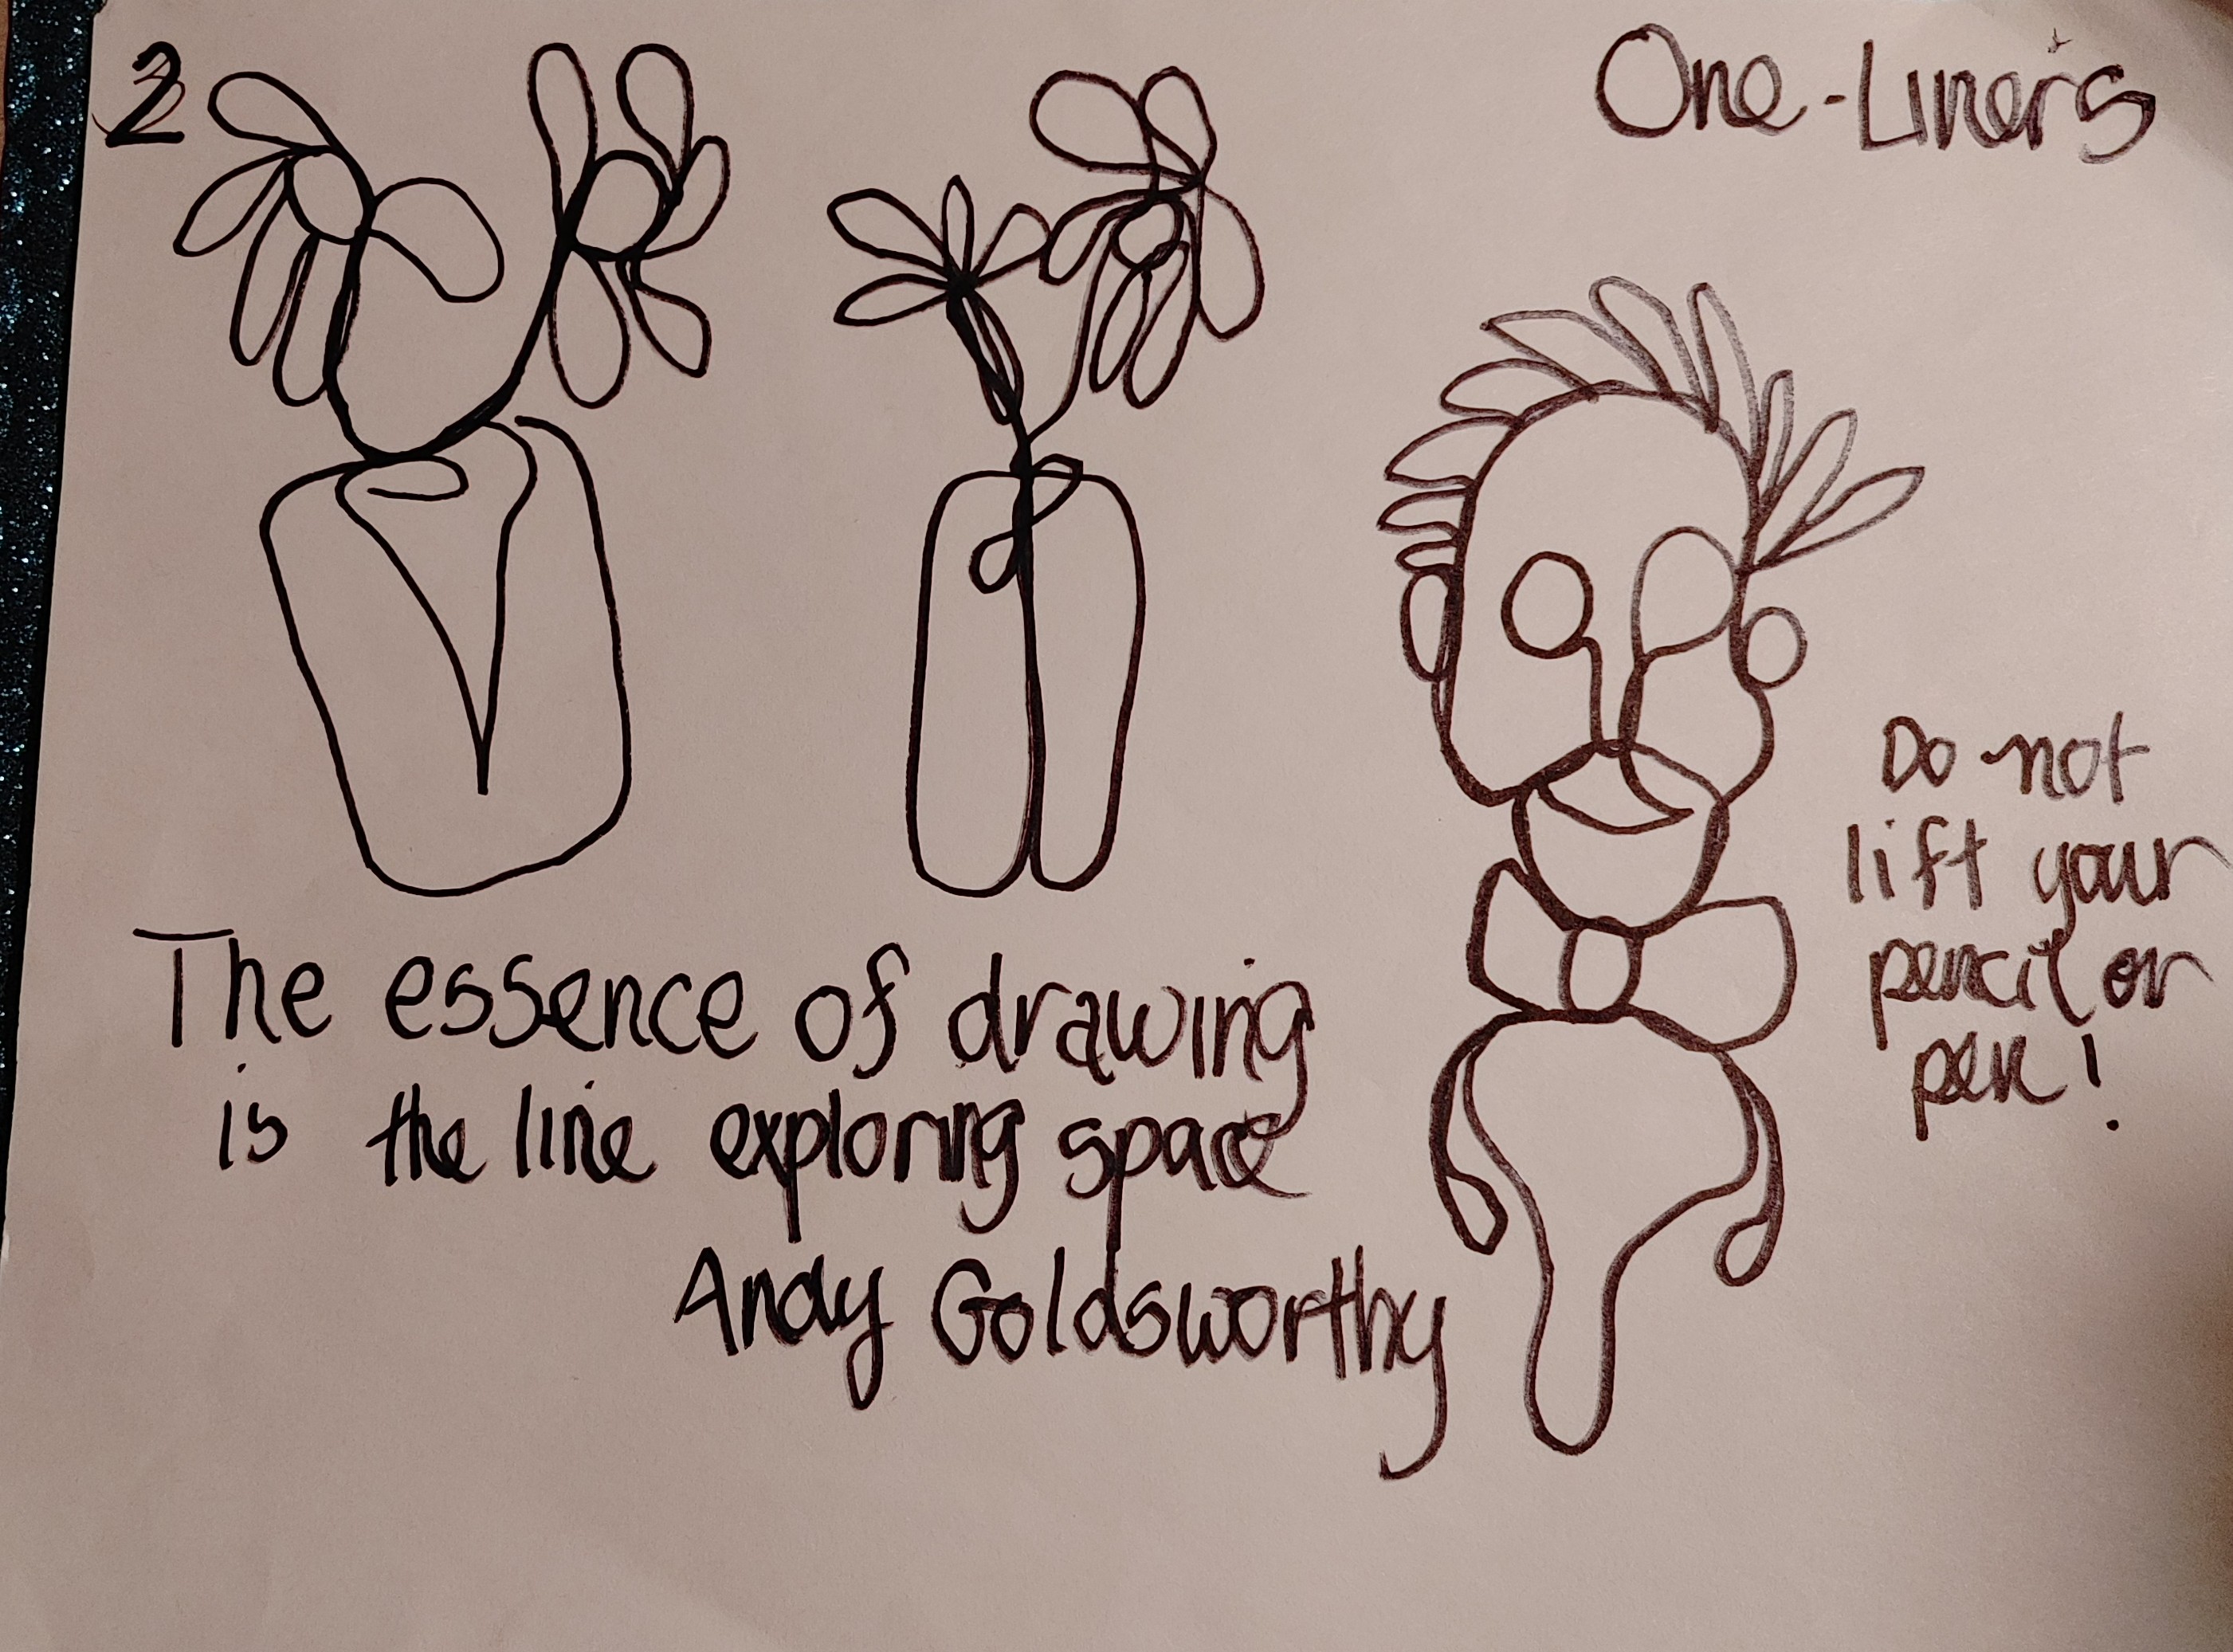 2
One-Liner's
The essence of drawing
is the line exploring space
Andy Goldsworthy
Do not
lift your
pencil or
pen!